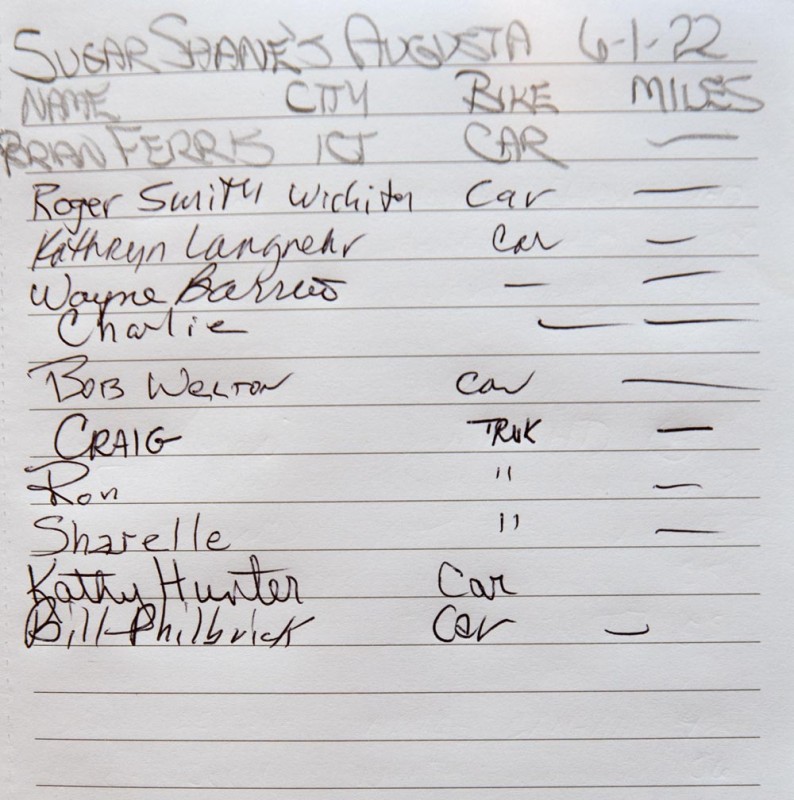 SUGAR SHANE'S AUGUSTA 6-1-22
NAME CITY BIKE MILES
BRIAN FERRIS ICT CAR —
Roger Smith Wichita Car —
Kathryn Langrehr Car —
Wayne — —
Charlie — —
BOB WELTON Car —
CRAIG TRUK —
Ron " —
Sharelle " —
Kathy Hunter Car
Bill Philbrick Car —